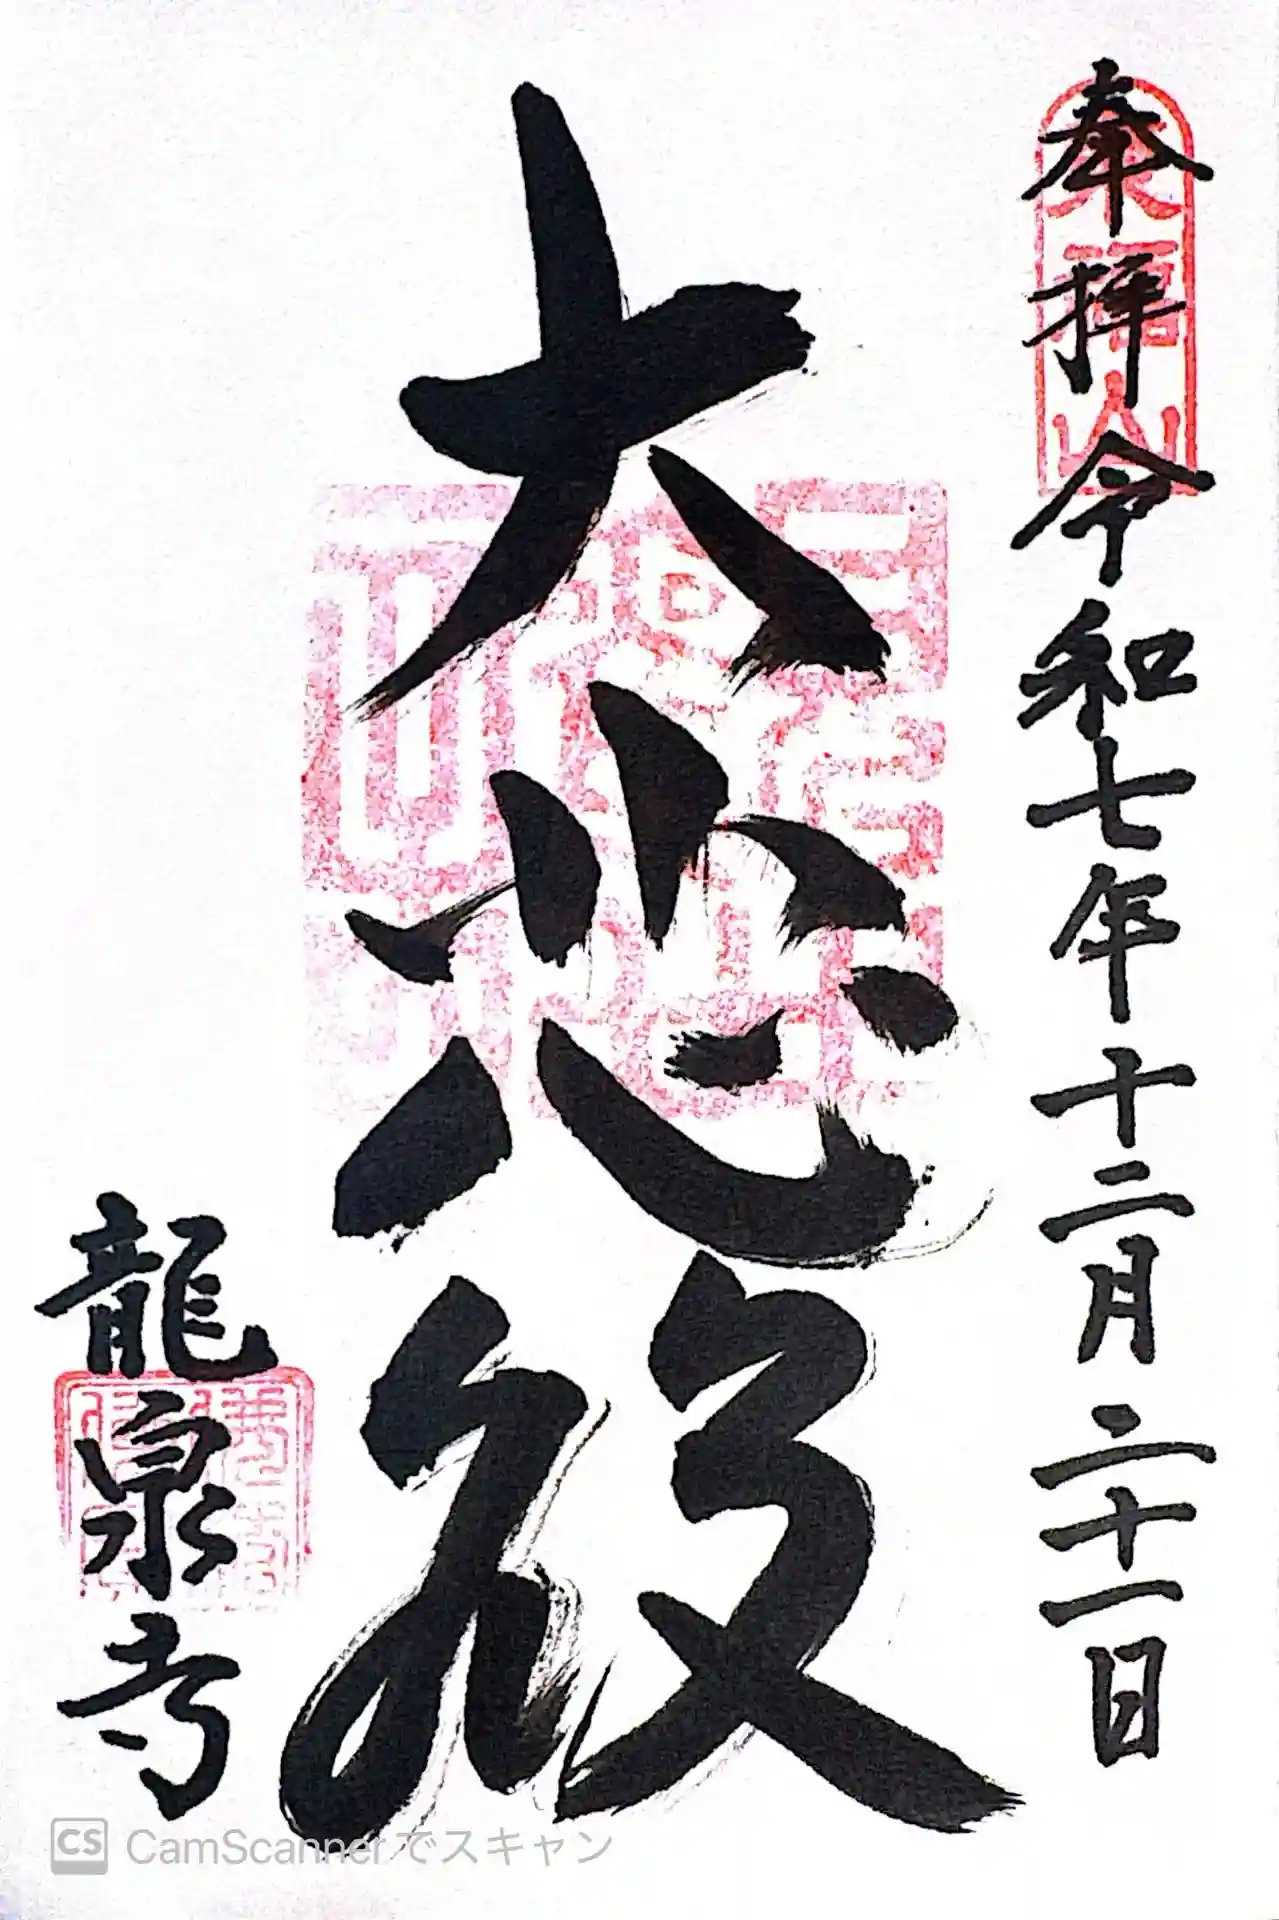 奉拝 令和七年十二月二十一日
大悲殿
龍泉寺
CS CamScanner でスキャン